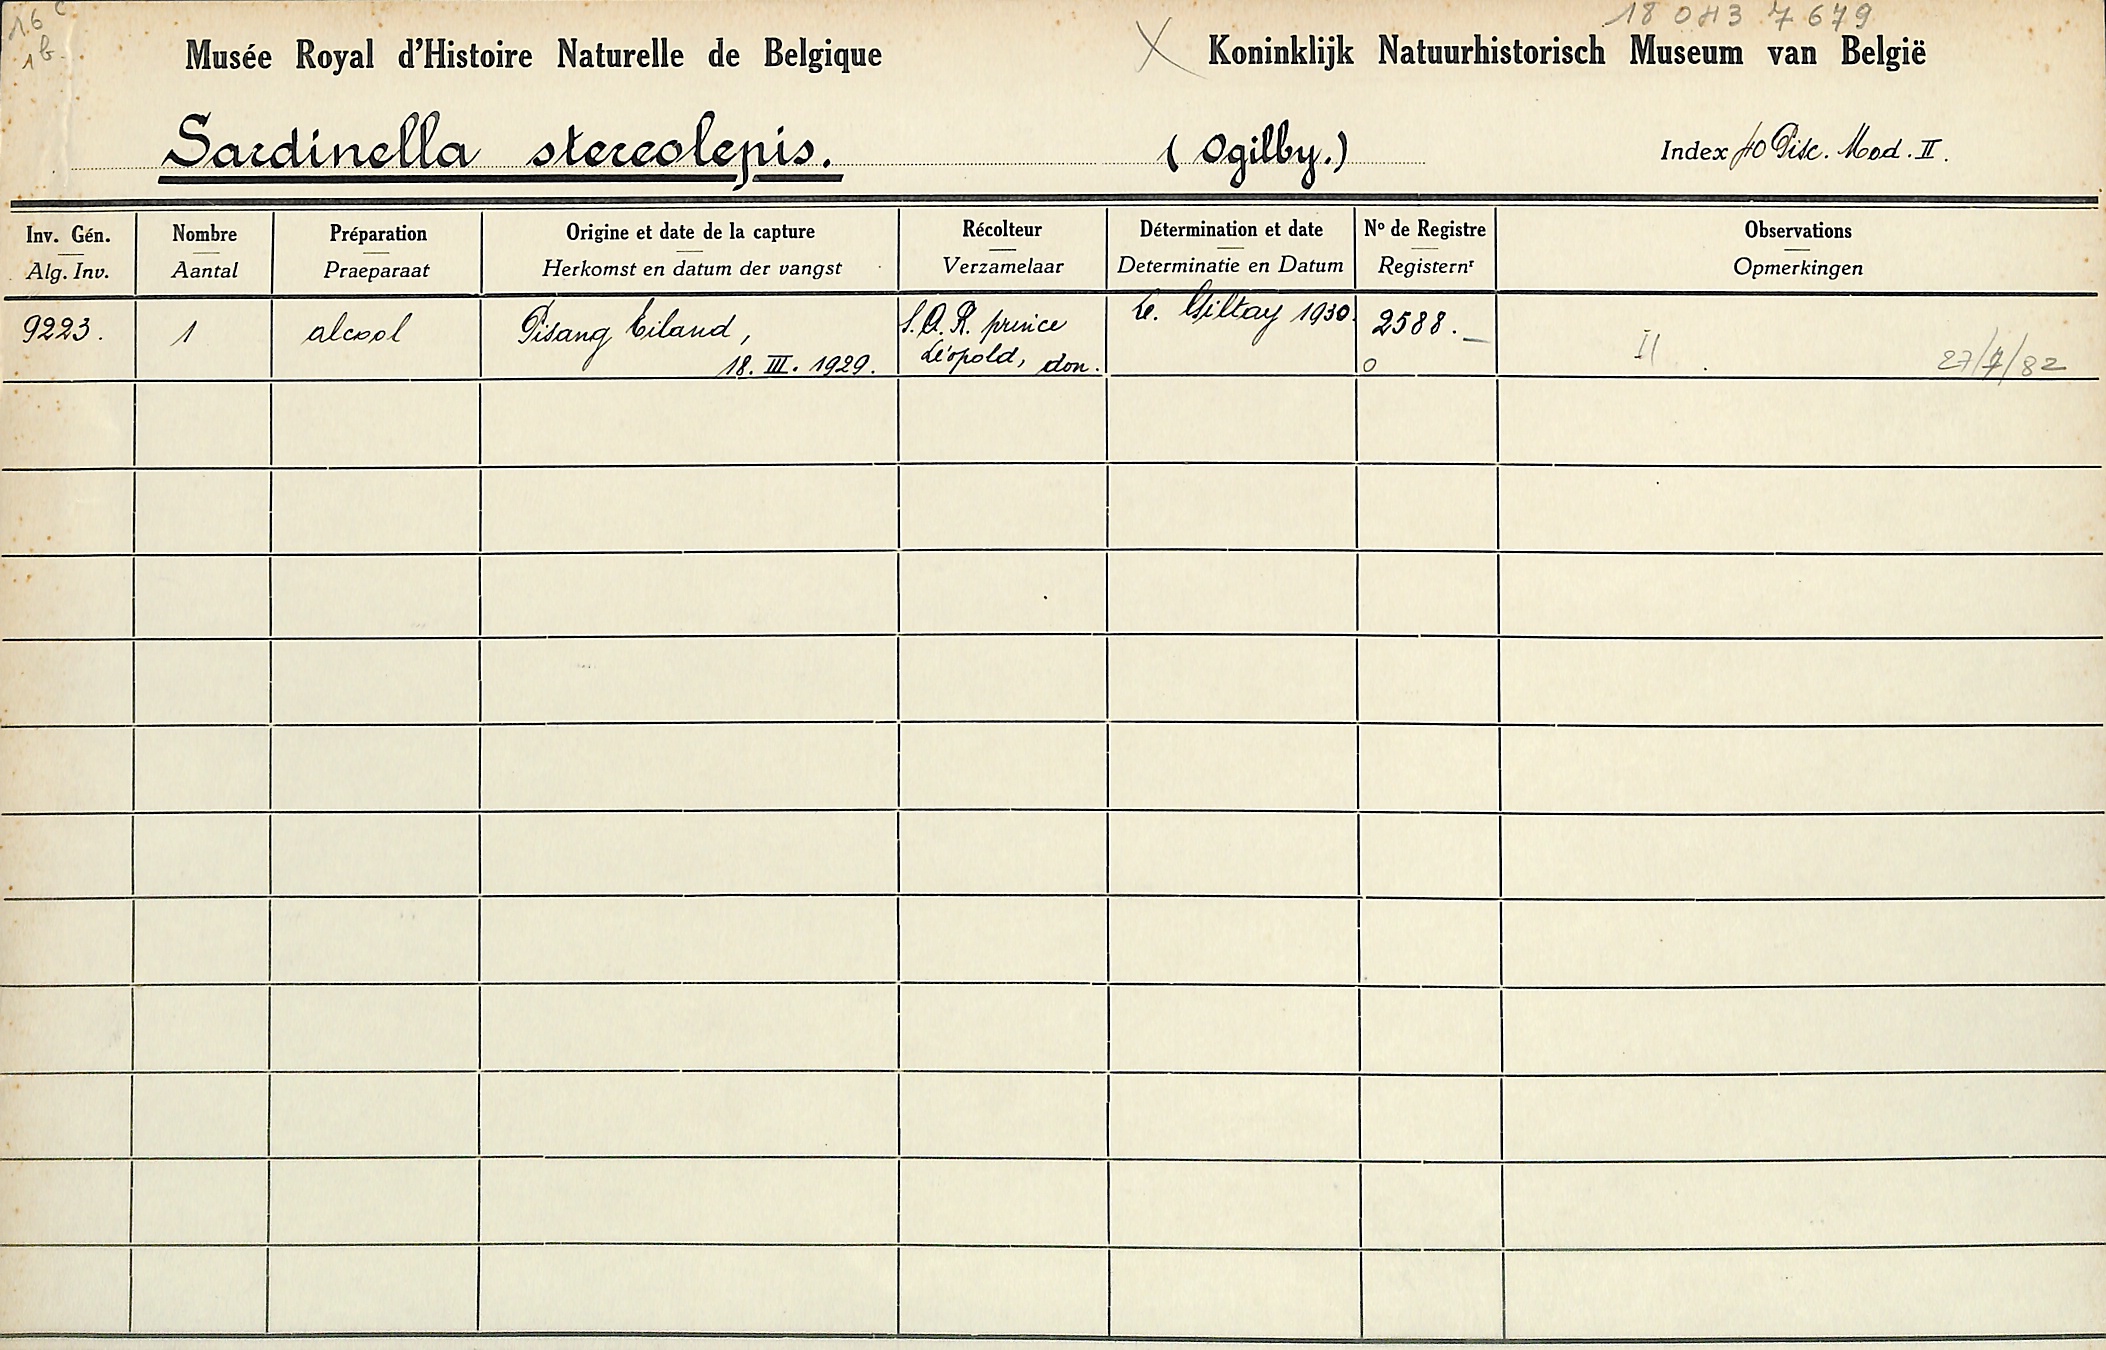 16 c
1 b
18 043 7 679
Musée Royal d'Histoire Naturelle de Belgique X Koninklijk Natuurhistorisch Museum van België
Sardinella stereolepis. (Ogilby.) Index 40 Pisc. Mod. II.
Inv. Gén. Nombre Préparation Origine et date de la capture Récolteur Détermination et date Nº de Registre Observations
Alg. Inv. Aantal Praeparaat Herkomst en datum der vangst Verzamelaar Determinatie en Datum Registernr Opmerkingen
9223. 1 alcool Pisang Eiland, S.A.R. prince L. Giltay 1930. 2588. II
18. III. 1929. Léopold, don. 0 27/7/82